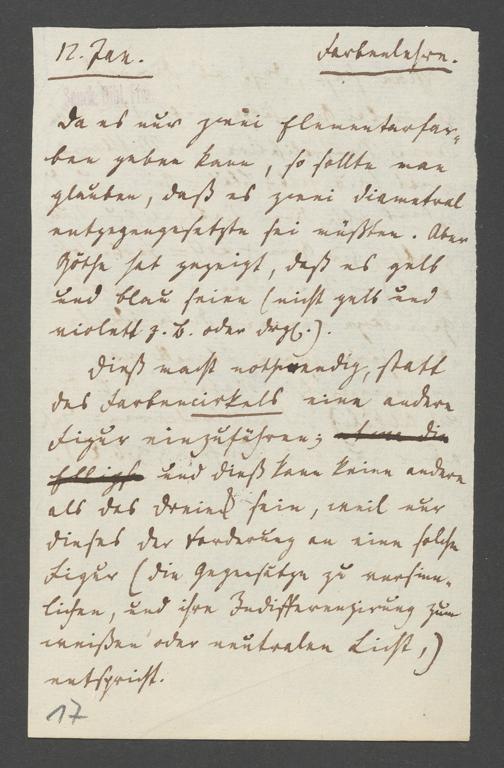 12. Jan. Farbenlehre.
Da es nur zwei Elementarfar-
ben geben kann, so sollte man
glauben, daß es zwei diametral
entgegengesetzte sei müßten. Aber
Göthe hat gezeigt, daß es gelb
und blau seien (nicht gelb und
violett z. B. oder drgl.).
Dieß macht nothwendig, statt
des Farbencirkels eine andere
Figur einzuführen; die
und dieß kann keine andere
als das Dreieck sein, weil nur
dieses der Forderung an eine solche
Figur (die Gegensätze zu versinn-
lichen, und ihre Indifferenzirung zum
weißen oder neutralen Licht,)
entspricht.
17